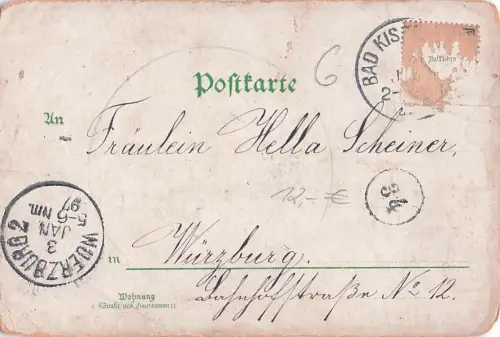 Postkarte
6
BAD KIS
2-
Aufkleben
An
Fräulein Hella Scheiner,
12,-€
34
WUERZBURG 2
3
JAN.
97
5-6 NM.
in
Würzburg.
Wohnung
(Straße und Hausnummer)
Bahnhofstraße No 12.